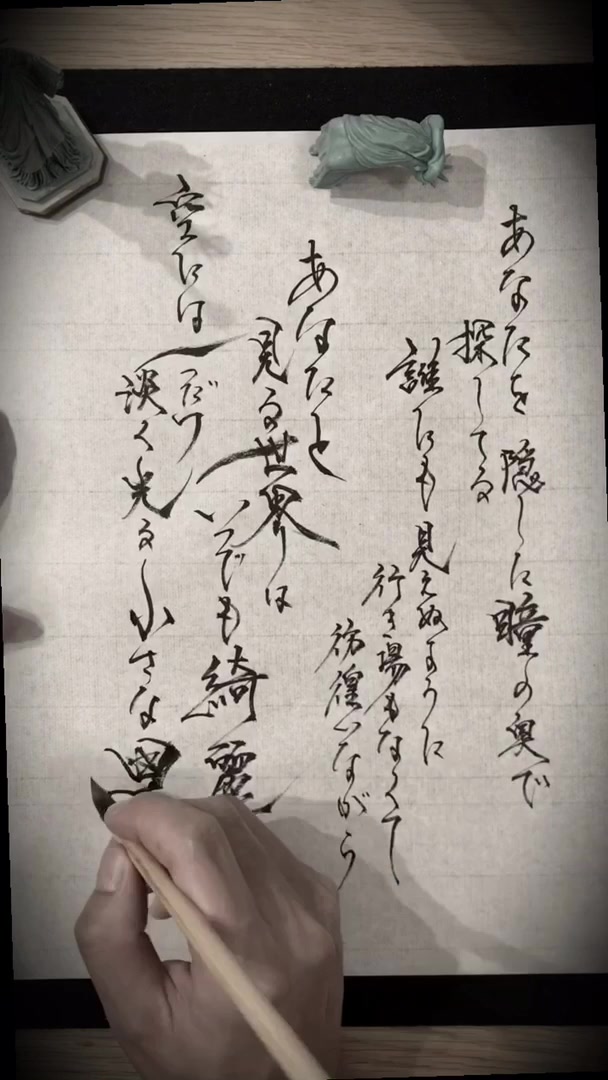 あなたを 隠した瞳の奥で
探してる
誰にも 見えぬように
行き場もなくて
彷徨いながら
あなたと
見る世界は
いつでも綺麗
空には
一つだけ
淡く光る小さな